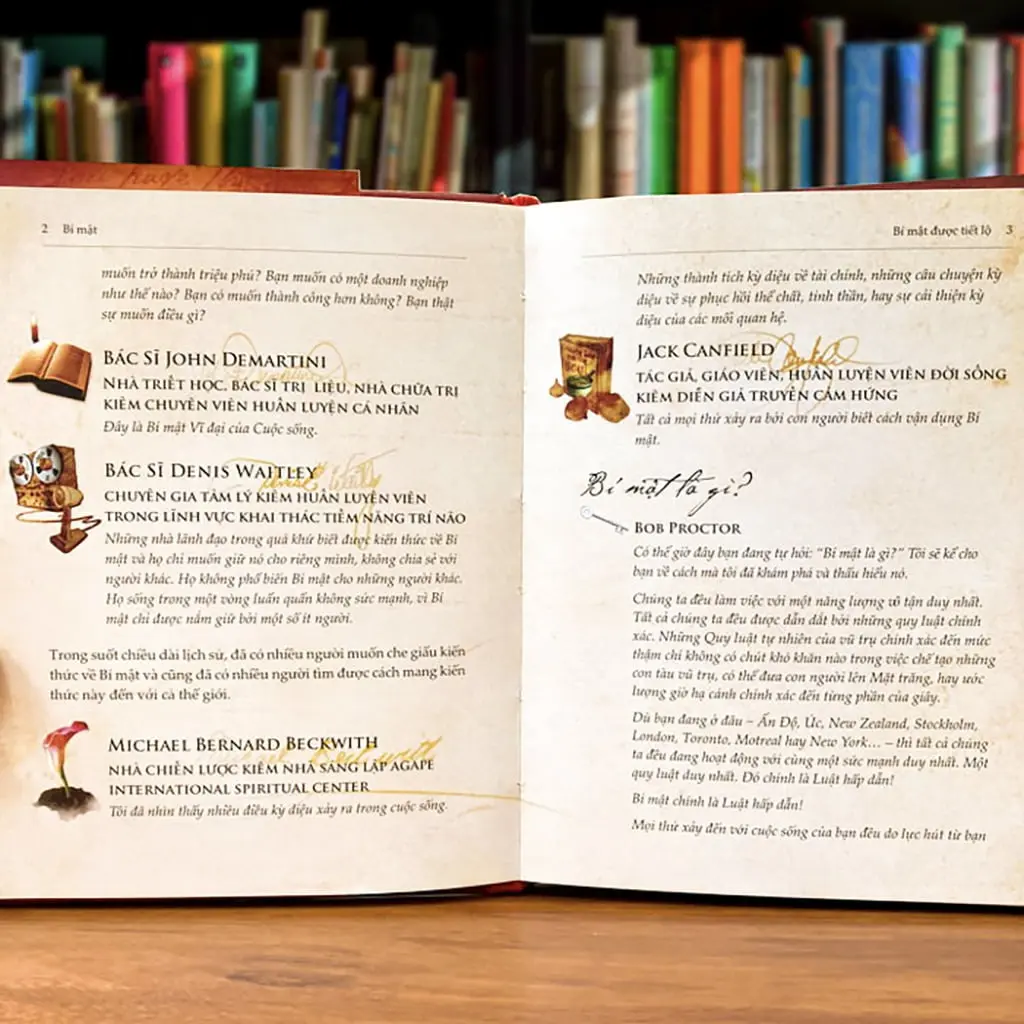 2 Bí mật
muốn trở thành triệu phú? Bạn muốn có một doanh nghiệp
như thế nào? Bạn có muốn thành công hơn không? Bạn thật
sự muốn điều gì?
BÁC SĨ JOHN DEMARTINI
NHÀ TRIẾT HỌC, BÁC SĨ TRỊ LIỆU, NHÀ CHỮA TRỊ
KIÊM CHUYÊN VIÊN HUẤN LUYỆN CÁ NHÂN
Đây là Bí mật Vĩ đại của Cuộc sống.
BÁC SĨ DENIS WAITLEY
CHUYÊN GIA TÂM LÝ KIÊM HUẤN LUYỆN VIÊN
TRONG LĨNH VỰC KHAI THÁC TIỀM NĂNG TRÍ NÃO
Những nhà lãnh đạo trong quá khứ biết được kiến thức về Bí
mật và họ chỉ muốn giữ nó cho riêng mình, không chia sẻ với
người khác. Họ không phổ biến Bí mật cho những người khác.
Họ sống trong một vòng luẩn quẩn không sức mạnh, vì Bí
mật chỉ được nắm giữ bởi một số ít người.
Trong suốt chiều dài lịch sử, đã có nhiều người muốn che giấu kiến
thức về Bí mật và cũng đã có nhiều người tìm được cách mang kiến
thức này đến với cả thế giới.
MICHAEL BERNARD BECKWITH
NHÀ CHIẾN LƯỢC KIÊM NHÀ SÁNG LẬP AGAPE
INTERNATIONAL SPIRITUAL CENTER
Tôi đã nhìn thấy nhiều điều kỳ diệu xảy ra trong cuộc sống.
Bí mật được tiết lộ 3
Những thành tích kỳ diệu về tài chính, những câu chuyện kỳ
diệu về sự phục hồi thể chất, tinh thần, hay sự cải thiện kỳ
diệu của các mối quan hệ.
JACK CANFIELD
TÁC GIẢ, GIÁO VIÊN, HUẤN LUYỆN VIÊN ĐỜI SỐNG
KIÊM DIỄN GIẢ TRUYỀN CẢM HỨNG
Tất cả mọi thứ xảy ra bởi con người biết cách vận dụng Bí
mật.
Bí mật là gì?
BOB PROCTOR
Có thể giờ đây bạn đang tự hỏi: “Bí mật là gì?” Tôi sẽ kể cho
bạn về cách mà tôi đã khám phá và thấu hiểu nó.
Chúng ta đều làm việc với một năng lượng vô tận duy nhất.
Tất cả chúng ta đều được dẫn dắt bởi những quy luật chính
xác. Những Quy luật tự nhiên của vũ trụ chính xác đến mức
thậm chí không có chút khó khăn nào trong việc chế tạo những
con tàu vũ trụ, có thể đưa con người lên Mặt trăng, hay ước
lượng giờ hạ cánh chính xác đến từng phần của giây.
Dù bạn đang ở đâu – Ấn Độ, Úc, New Zealand, Stockholm,
London, Toronto, Motreal hay New York… – thì tất cả chúng
ta đều đang hoạt động với cùng một sức mạnh duy nhất. Một
quy luật duy nhất. Đó chính là Luật hấp dẫn!
Bí mật chính là Luật hấp dẫn!
Mọi thứ xảy đến với cuộc sống của bạn đều do lực hút từ bạn